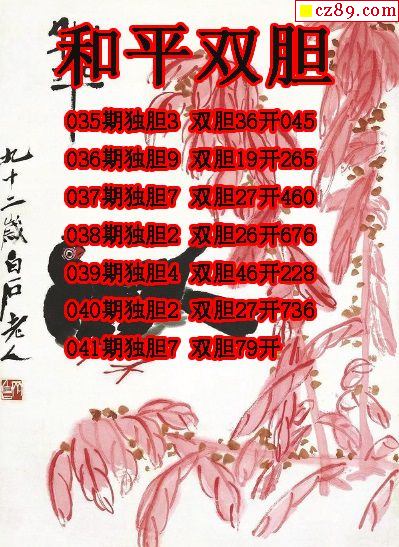 cz89.com
和平双胆
035期独胆3 双胆36开045
036期独胆9 双胆19开265
037期独胆7 双胆27开460
038期独胆2 双胆26开676
039期独胆4 双胆46开228
040期独胆2 双胆27开736
041期独胆7 双胆79开
九十二岁白石老人